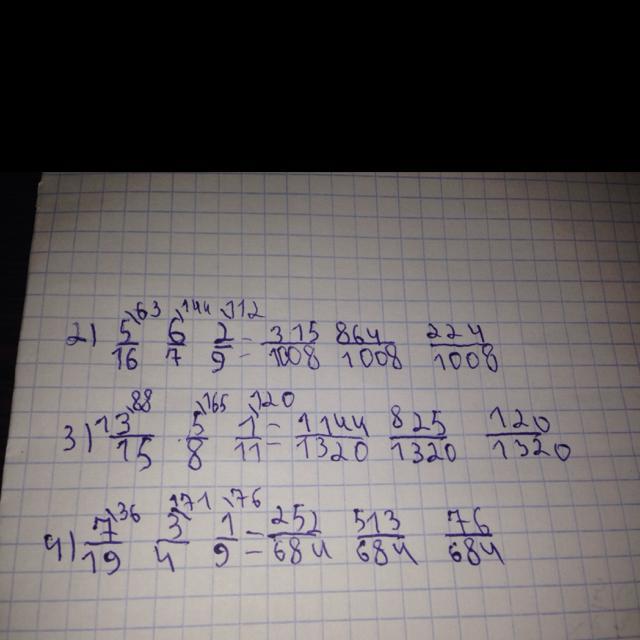 2) 5/16 \63 6/7 \144 2/9 \112 = 315/1008 864/1008 224/1008
3) 13/15 \88 5/8 \165 1/11 \120 = 1144/1320 825/1320 120/1320
4) 7/19 \36 3/4 \171 1/9 \76 = 252/684 513/684 76/684